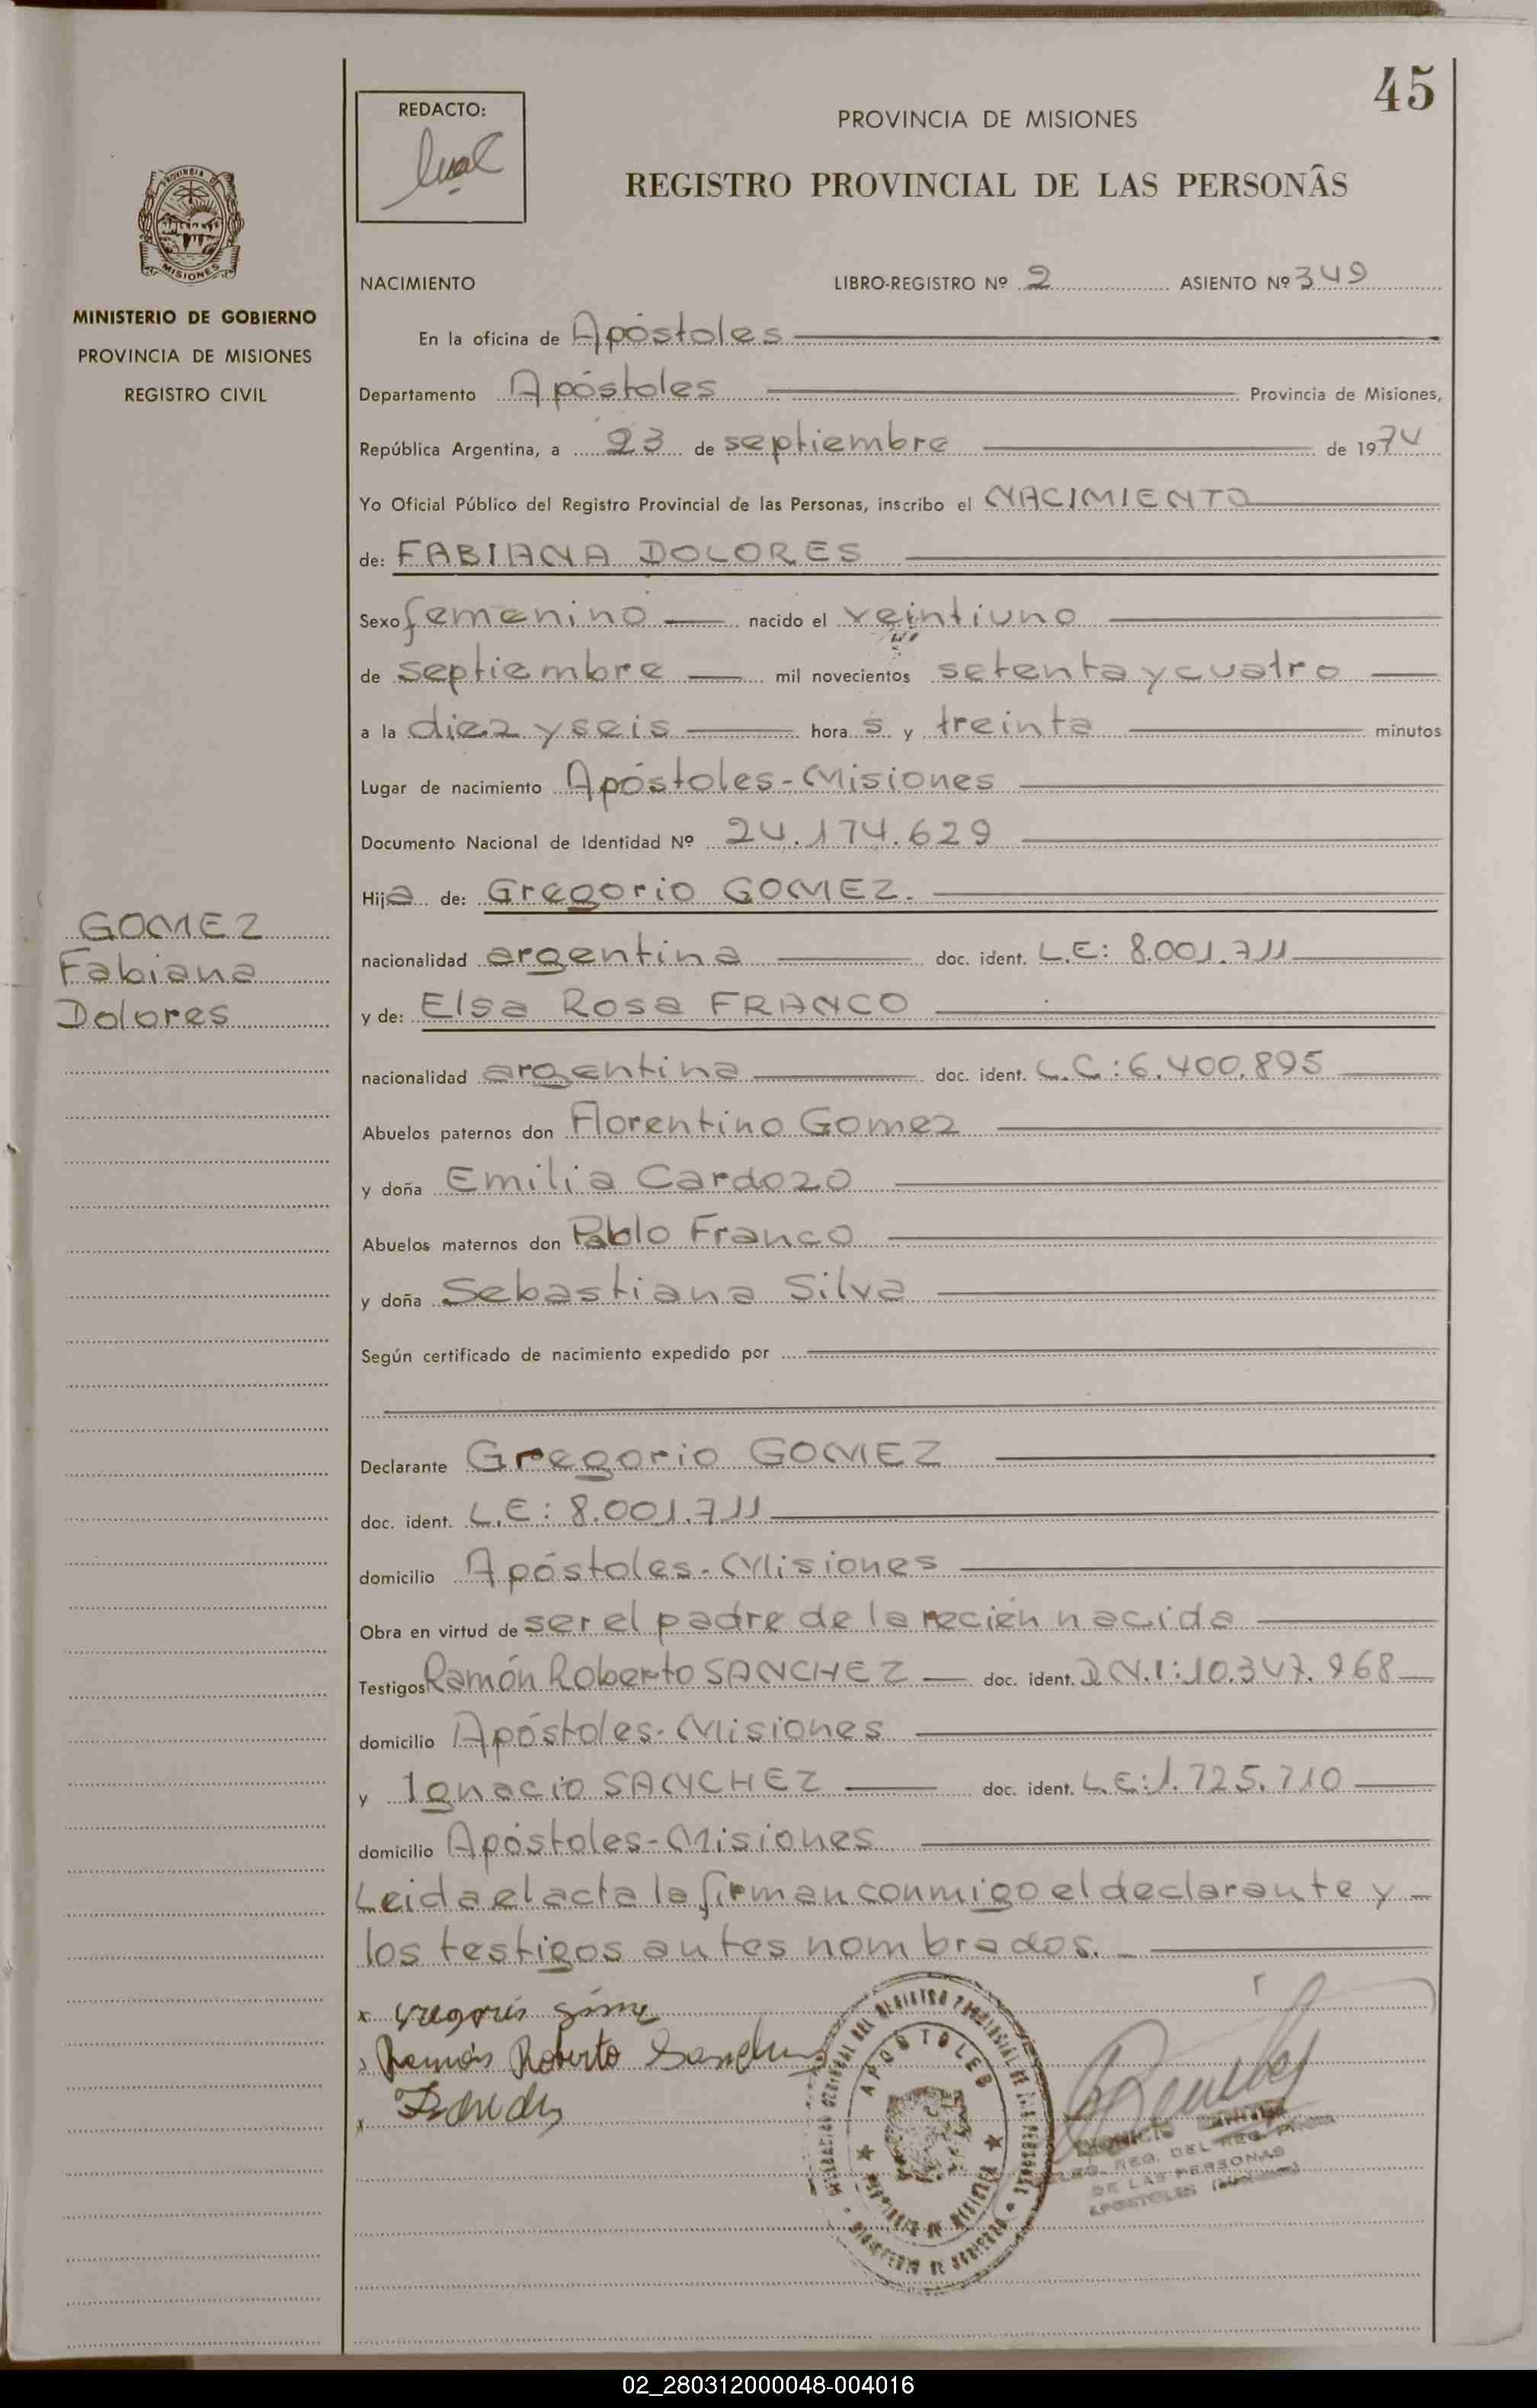 45
REDACTO:
PROVINCIA DE MISIONES
REGISTRO PROVINCIAL DE LAS PERSONAS
PROVINCIA
MISIONES
MINISTERIO DE GOBIERNO
PROVINCIA DE MISIONES
REGISTRO CIVIL
NACIMIENTO LIBRO-REGISTRO Nº 2 ASIENTO Nº 349
En la oficina de Apóstoles
Departamento Apóstoles Provincia de Misiones,
República Argentina, a 23 de septiembre de 1974
Yo Oficial Público del Registro Provincial de las Personas, inscribo el NACIMIENTO
de: FABIANA DOLORES
Sexo femenino nacido el veintiuno
de septiembre mil novecientos setenta y cuatro
a la diez y seis hora s y treinta minutos
Lugar de nacimiento Apóstoles-Misiones
Documento Nacional de Identidad Nº 24.174.629
Hija de: Gregorio GOMEZ.
GOMEZ
Fabiana
Dolores
nacionalidad argentina doc. ident. L.E: 8.001.711
y de: Elsa Rosa FRANCO
nacionalidad argentina doc. ident. L.C: 6.400.895
Abuelos paternos don Florentino Gomez
y doña Emilia Cardozo
Abuelos maternos don Pablo Franco
y doña Sebastiana Silva
Según certificado de nacimiento expedido por
Declarante Gregorio GOMEZ
doc. ident. L.E: 8.001.711
domicilio Apóstoles-Misiones
Obra en virtud de ser el padre de la recién nacida
Testigos Ramón Roberto SANCHEZ doc. ident. D.N.I: 10.347.968
domicilio Apóstoles-Misiones
y Ignacio SANCHEZ doc. ident. L.E: 1.725.710
domicilio Apóstoles-Misiones
Leida el acta la firman conmigo el declarante y
los testigos antes nombrados.
x Gregorio
Ramón Roberto Sanchez
APOSTOLES
REG. DEL REG.
DE LAS PERSONAS
APOSTOLES
02_280312000048-004016